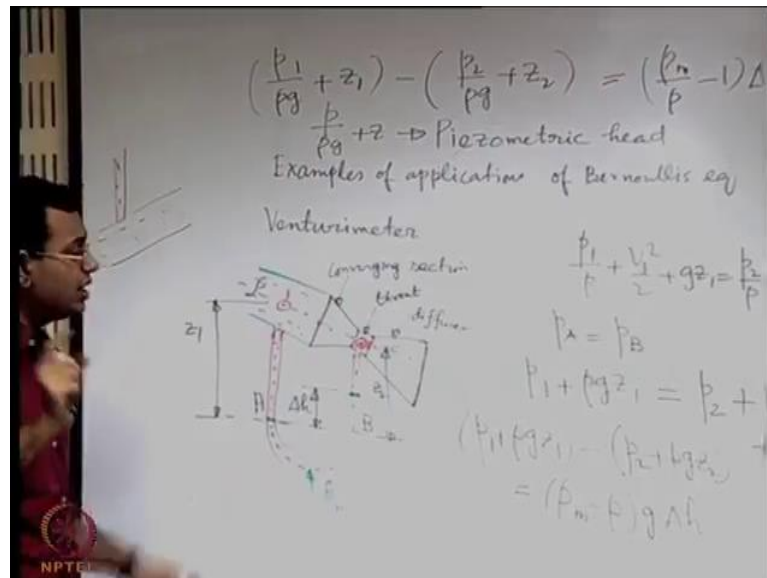 (p₁/ρg + z₁) − (p₂/ρg + z₂) = (ρₘ/ρ − 1)Δ
p/ρg + z → Piezometric head
Examples of application of Bernoullis eq
Venturimeter
converging section
throat
ρ
1
z₁
z₂
A
Δh
B
p₁/ρ + V₁²/2 + gz₁ = p₂/ρ
p_A = p_B
p₁ + ρgz₁ = p₂ +
(p₁+ρgz₁) − (p₂+ρgz₂)
= (ρₘ−ρ)gΔh
NPTEL